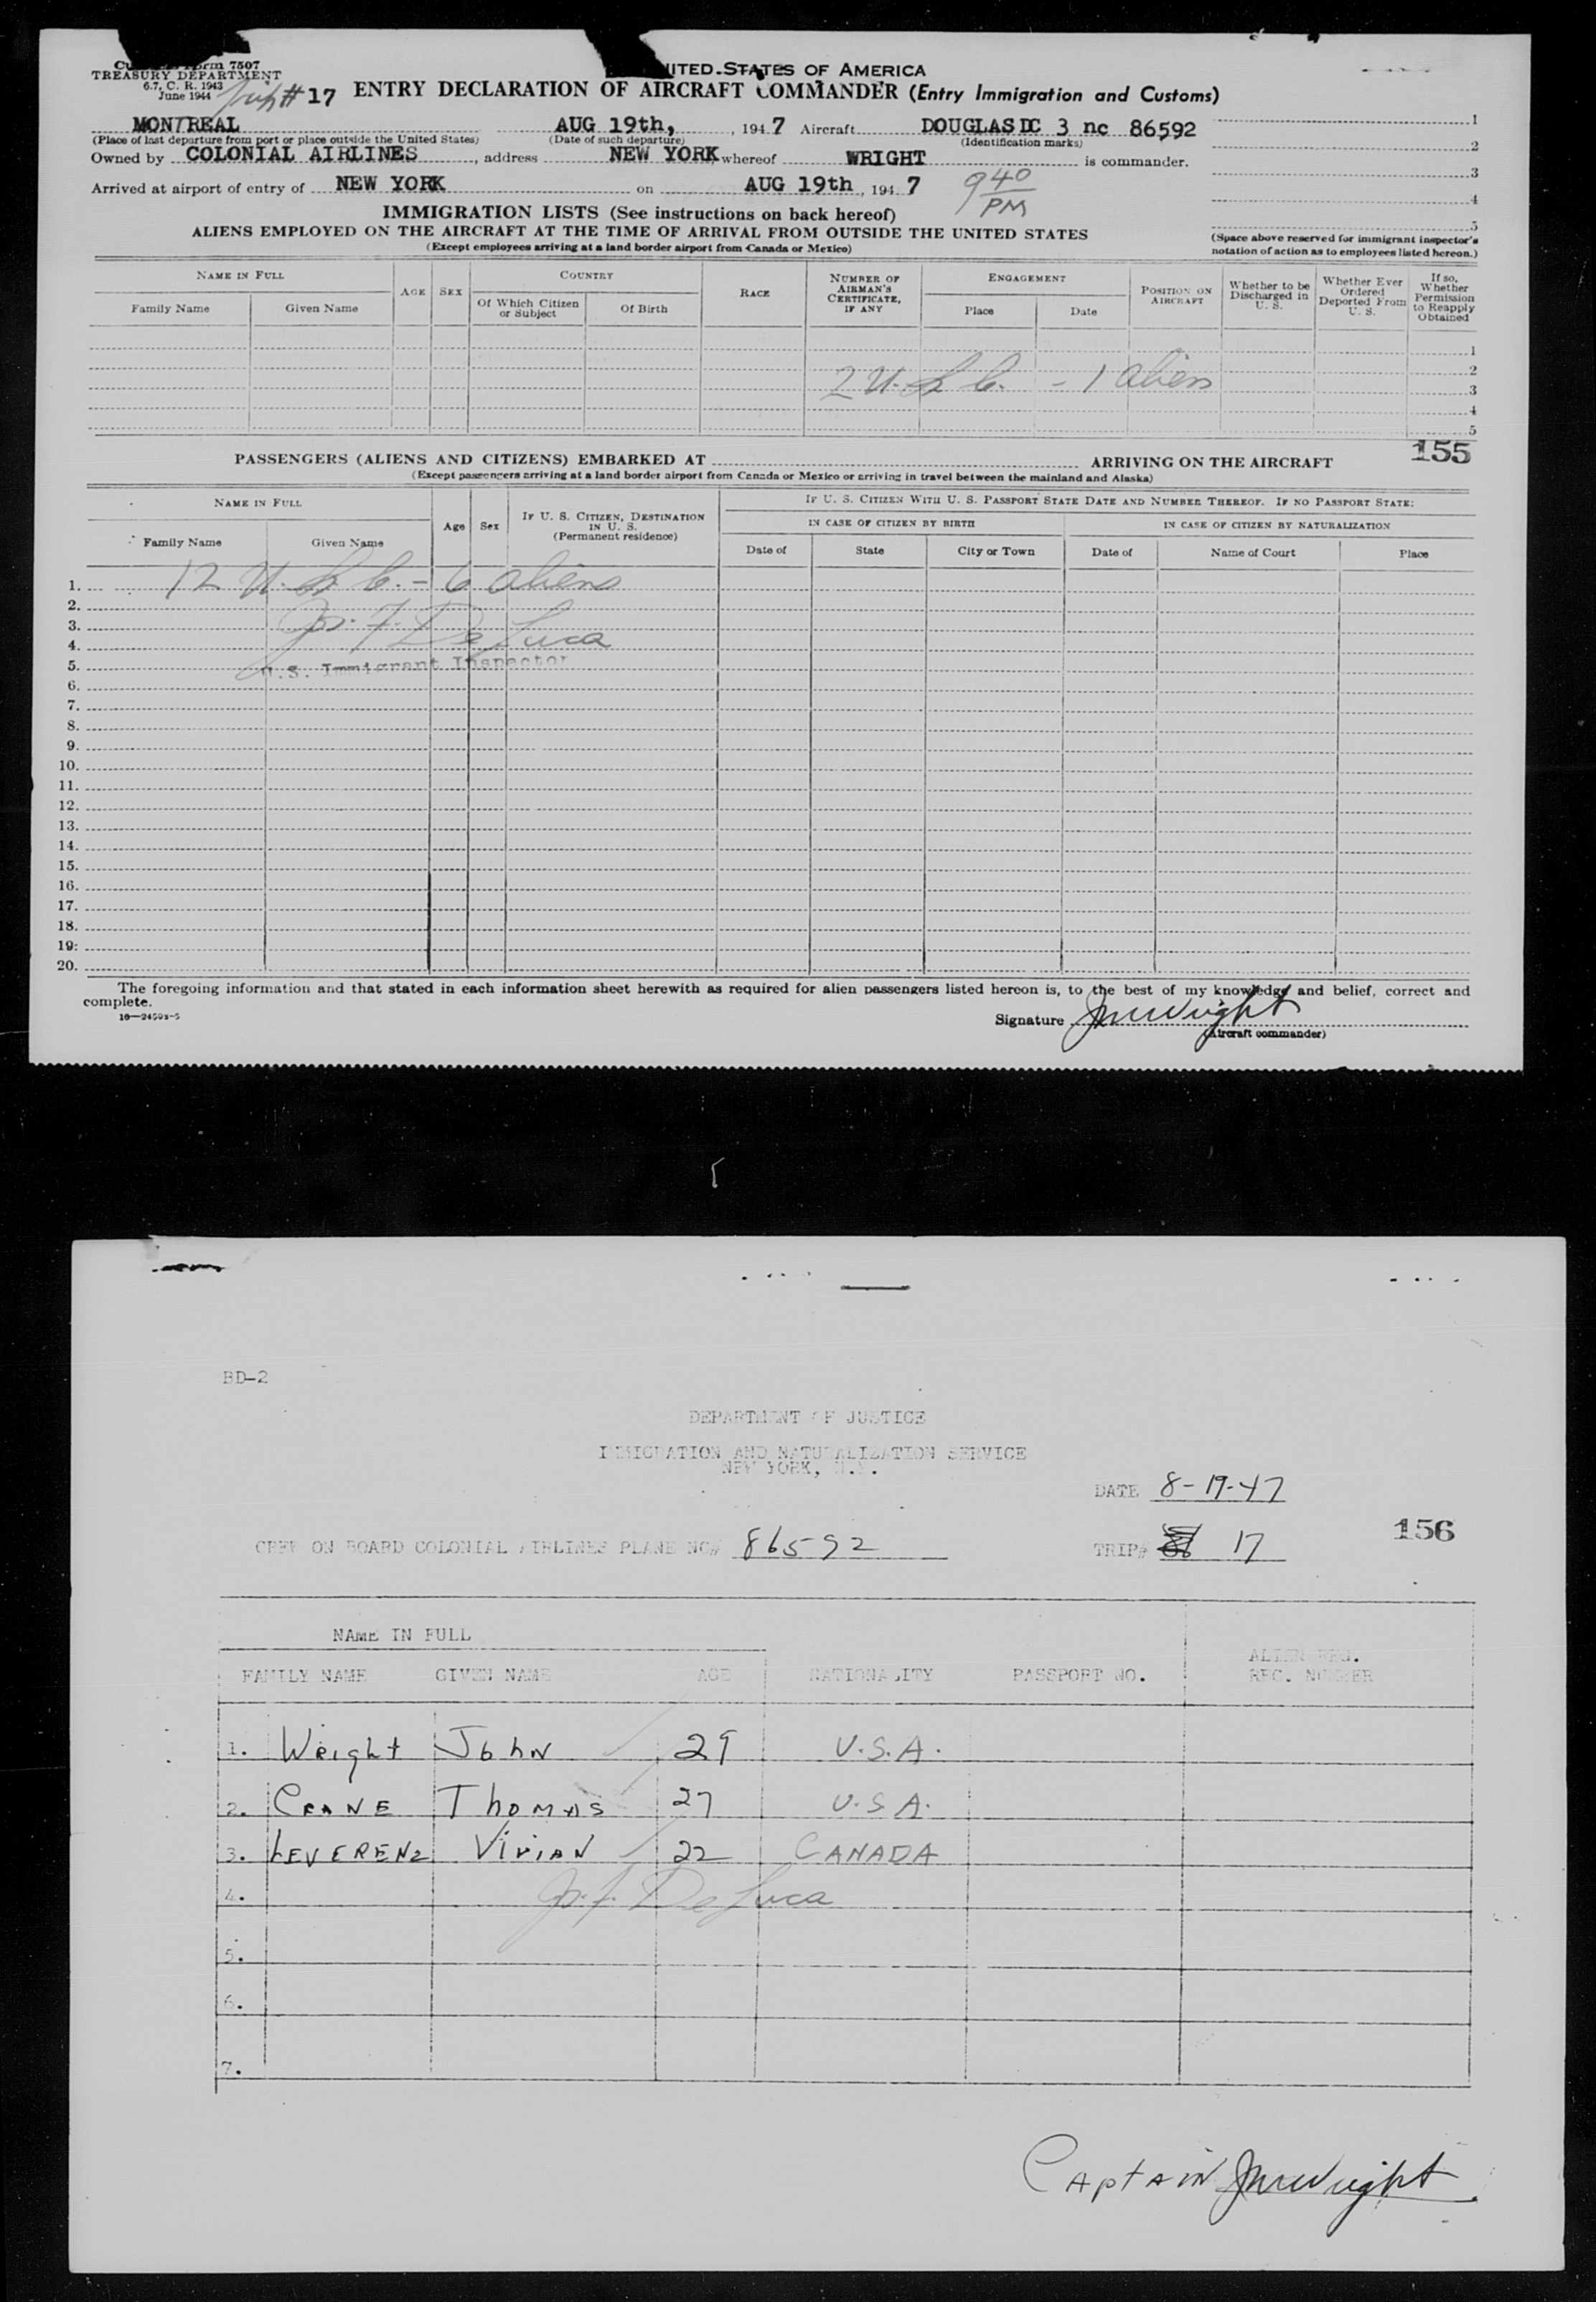 Form 7507
TREASURY DEPARTMENT
6.7, C. R. 1943
June 1944
Trip # 17
UNITED STATES OF AMERICA
ENTRY DECLARATION OF AIRCRAFT COMMANDER (Entry Immigration and Customs)
MONTREAL AUG 19th, , 194 7 Aircraft DOUGLAS DC 3 nc 86592 1
(Place of last departure from port or place outside the United States) (Date of such departure) (Identification marks) 2
Owned by COLONIAL AIRLINES , address NEW YORK whereof WRIGHT is commander.
3
Arrived at airport of entry of NEW YORK on AUG 19th , 194 7 9 40 PM
4
IMMIGRATION LISTS (See instructions on back hereof)
5
ALIENS EMPLOYED ON THE AIRCRAFT AT THE TIME OF ARRIVAL FROM OUTSIDE THE UNITED STATES
(Except employees arriving at a land border airport from Canada or Mexico)
(Space above reserved for immigrant inspector's
notation of action as to employees listed hereon.)
NAME IN FULL AGE SEX COUNTRY RACE NUMBER OF AIRMAN'S CERTIFICATE, IF ANY ENGAGEMENT POSITION ON AIRCRAFT Whether to be Discharged in U. S. Whether Ever Ordered Deported From U. S. If so, Whether Permission to Reapply Obtained
Family Name Given Name Of Which Citizen or Subject Of Birth Place Date
1
2
2 U. S. C. - 1 alien
3
4
5
155
PASSENGERS (ALIENS AND CITIZENS) EMBARKED AT ARRIVING ON THE AIRCRAFT
(Except passengers arriving at a land border airport from Canada or Mexico or arriving in travel between the mainland and Alaska)
NAME IN FULL Age Sex IF U. S. CITIZEN, DESTINATION IN U. S. (Permanent residence) IF U. S. CITIZEN WITH U. S. PASSPORT STATE DATE AND NUMBER THEREOF. IF NO PASSPORT STATE:
IN CASE OF CITIZEN BY BIRTH IN CASE OF CITIZEN BY NATURALIZATION
Family Name Given Name Date of State City or Town Date of Name of Court Place
1. 12 U. S. C. - 6 aliens
2.
3. F. De Luca
4.
5. U.S. Immigrant Inspector
6.
7.
8.
9.
10.
11.
12.
13.
14.
15.
16.
17.
18.
19.
20.
The foregoing information and that stated in each information sheet herewith as required for alien passengers listed hereon is, to the best of my knowledge and belief, correct and
complete.
Signature JMWright
(Aircraft commander)
BD-2
DEPARTMENT OF JUSTICE
IMMIGRATION AND NATURALIZATION SERVICE
NEW YORK, N.Y.
DATE 8-19-47
CREW ON BOARD COLONIAL AIRLINES PLANE NO# 86592 TRIP# 17 156
NAME IN FULL
FAMILY NAME GIVEN NAME AGE NATIONALITY PASSPORT NO. ALIEN REG. REC. NUMBER
1. Wright John 29 U.S.A.
2. CRANE Thomas 27 U.S.A.
3. LEVERENZ Vivian 22 CANADA
4. De Luca
5.
6.
7.
Captain JMWright